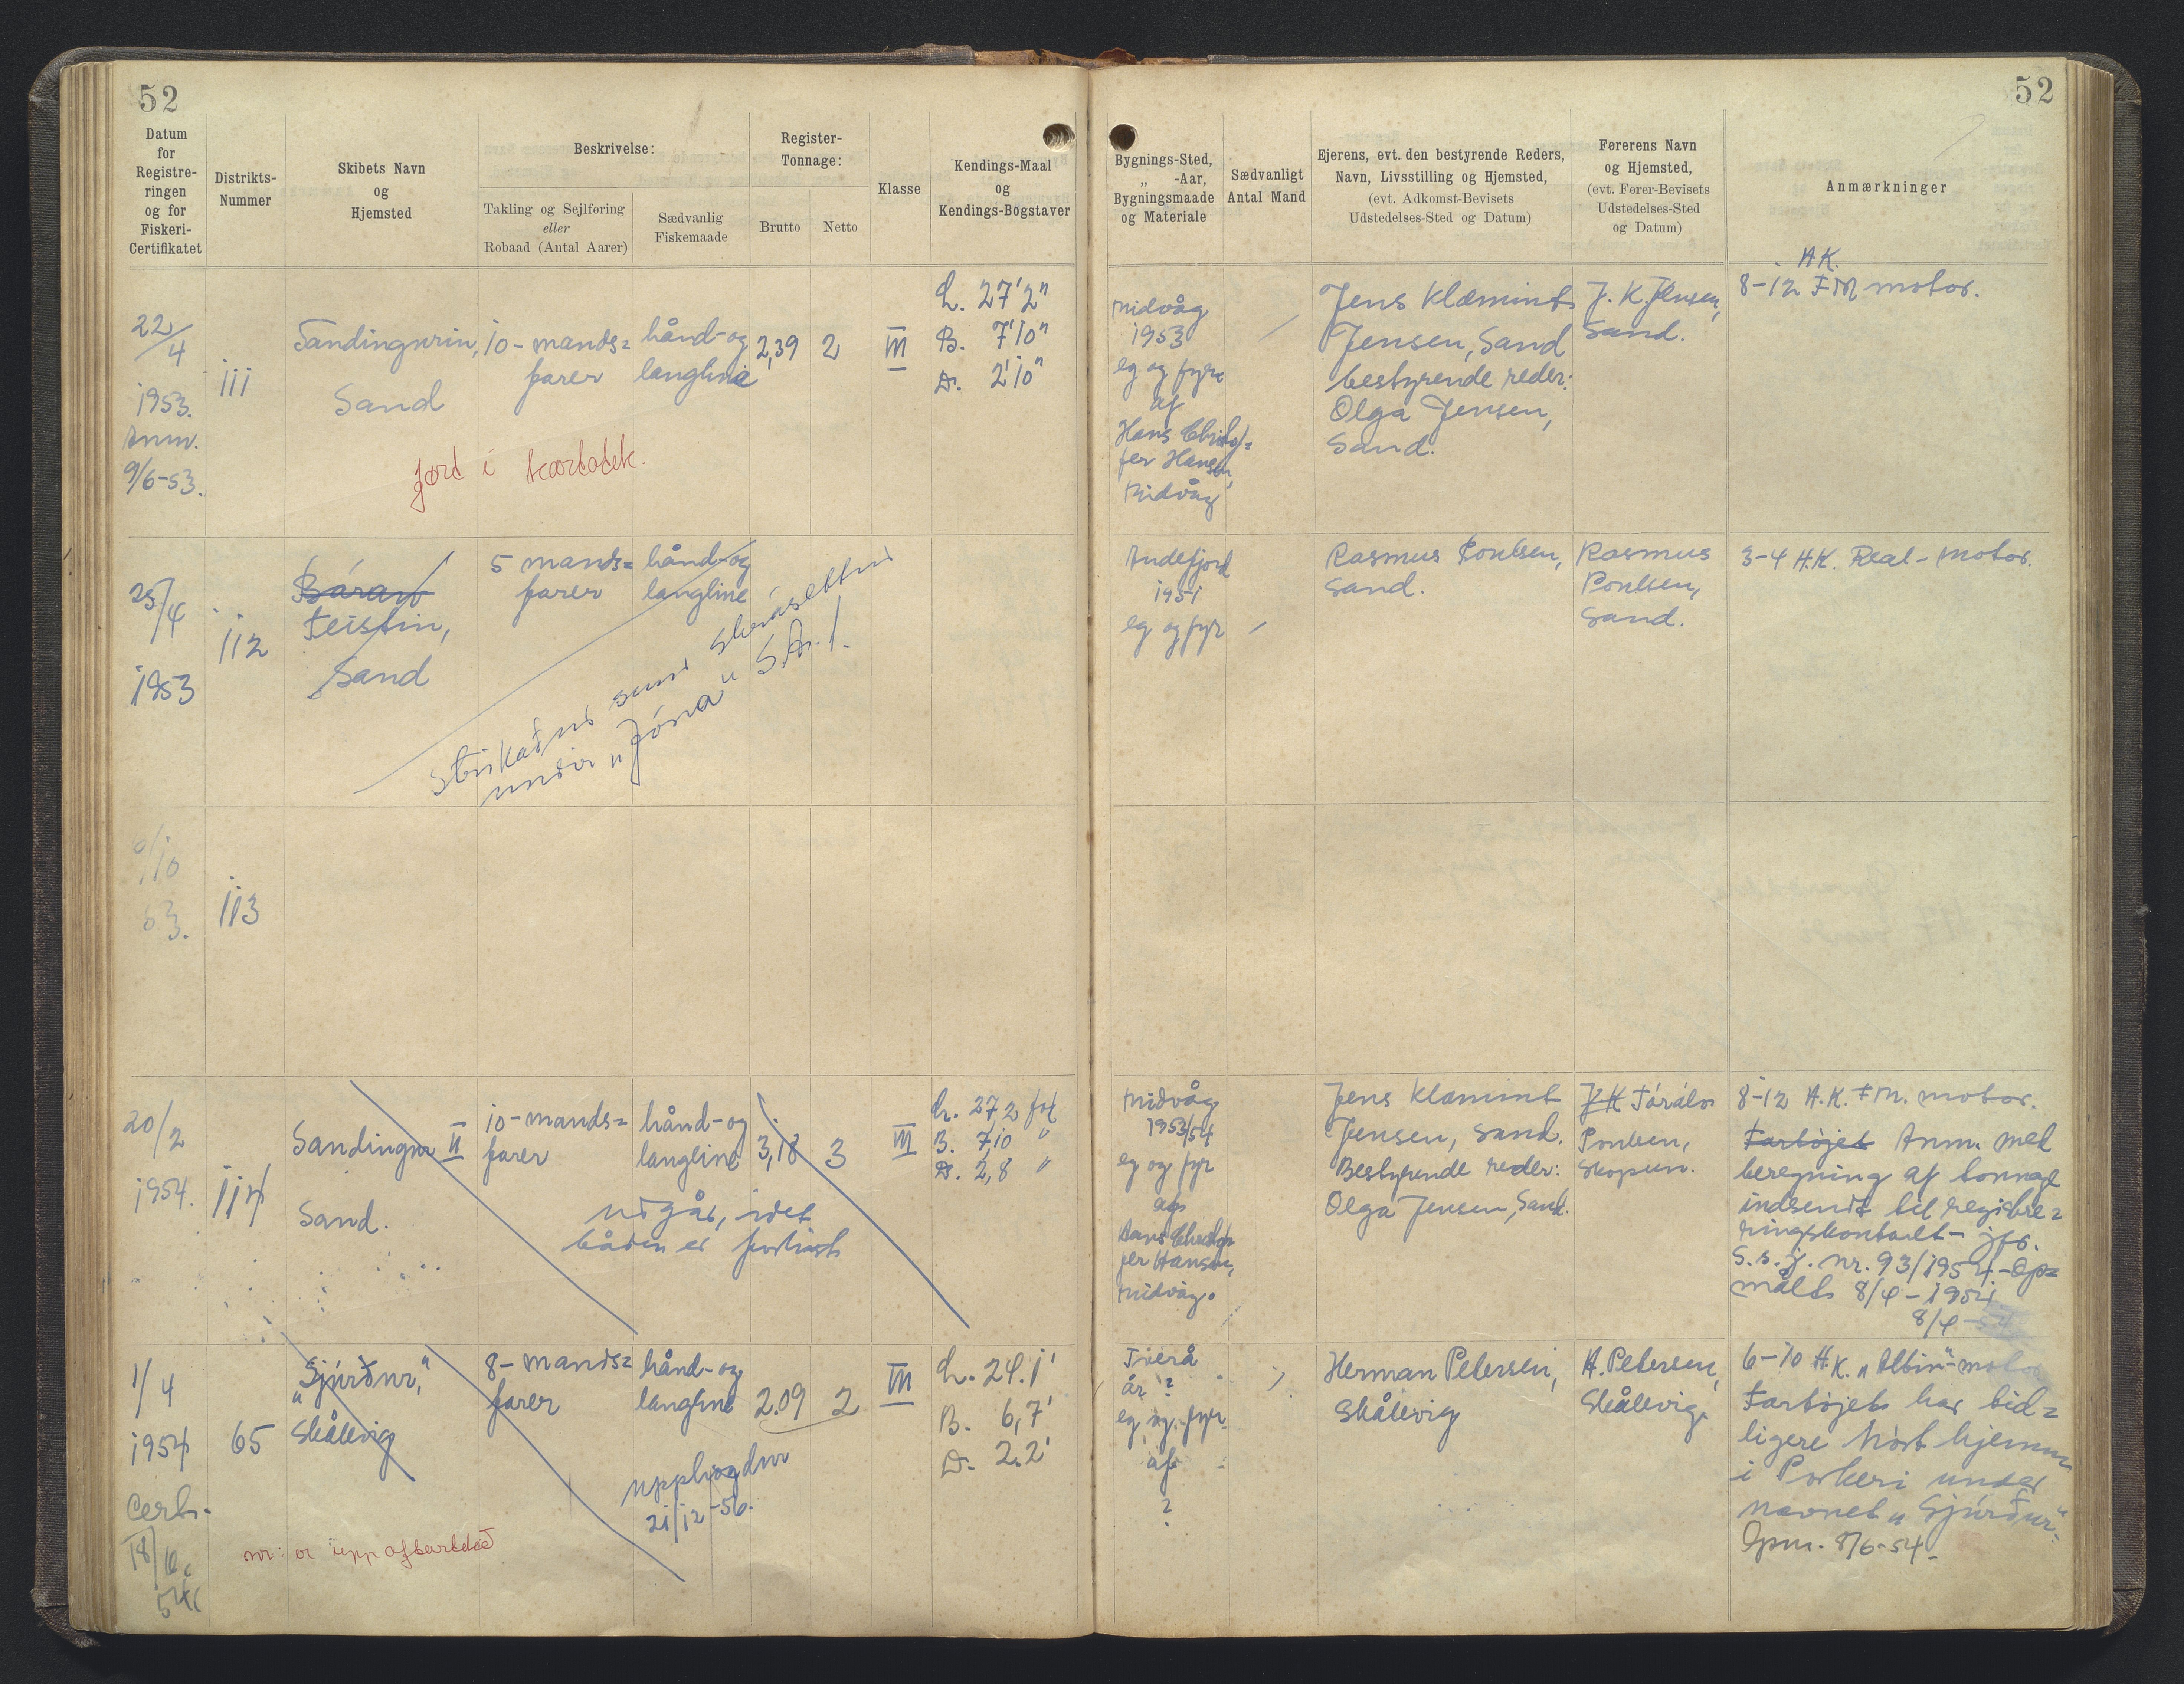 52
52
Datum
for
Registre-
ringen
og for
Fiskeri-
Certifikatet
Distrikts-
Nummer
Skibets Navn
og
Hjemsted
Beskrivelse:
Takling og Sejlføring
eller
Robaad (Antal Aarer)
Sædvanlig
Fiskemaade
Register-
Tonnage:
Brutto
Netto
Klasse
Kendings-Maal
og
Kendings-Bogstaver
Bygnings-Sted,
„ -Aar,
Bygningsmaade
og Materiale
Sædvanligt
Antal Mand
Ejerens, evt. den bestyrende Reders,
Navn, Livsstilling og Hjemsted,
(evt. Adkomst-Bevisets
Udstedelses-Sted og Datum)
Førerens Navn
og Hjemsted,
(evt. Fører-Bevisets
Udstedelses-Sted
og Datum)
Anmærkninger
22/4
1953.
Anm.
9/6-53.
111
Sandingurin,
Sand
10-mands=
farer
hånd-og
langline
2,39
2
III
L. 27'2"
B. 7'10"
D. 2'10"
ført i kartotek.
Midvåg
1953
eg og fyr
af
Hans Christof=
fer Hansen,
Midvåg
Jens Klæmint
Jensen, Sand
bestyrende reder:
Olga Jensen,
Sand.
J. K. Jensen,
Sand.
H.K.
8-12 FM motor.
25/4
1953
112
Báran
Teistin,
Sand
5 mands=
farer
hånd-og
langline
Strikaður sum skrásettur
undir „Jóna" SA. 1.
Andefjord
1951
eg og fyr
Rasmus Poulsen,
Sand.
Rasmus
Poulsen,
Sand.
3-4 H.K. Real-motor.
/10
63.
113
20/2
1954.
114
Sandingur II
Sand.
10-mands=
farer
hånd-og
langline
3,18
3
III
L. 27,2 fot
B. 7,10 "
D. 2,8 "
udgår, idet
båden er forlist
Midvåg
1953/54
eg og fyr
af
Hans Christof
fer Hansen,
Midvåg.
Jens Klæmint
Jensen, Sand.
Bestyrende reder:
Olga Jensen, Sand.
J K Tórálvr
Poulsen,
Skopun.
8-12 H.K. FM. motor.
Fartøjet Anm. med
beregning af tonnage
indsendt til registre=
ringskontoret - jfr.
S.s.j. nr. 93/1954 - Op=
målt 8/4-1954
8/4-54
1/4
1954
Cert.
18/6
54
65
„Sjúrður,"
Skålevig
8-mands=
farer
hånd-og
langline
2.09
2
III
L. 24.1'
B. 6,7'
D. 2.2'
upphøgdur
21/12-56.
nr: er upp aftur
Tverå
år ?
eg og fyr
af
?
Herman Petersen,
Skålevig
H. Petersen,
Skålevig.
6-10 H.K. „Albin"-motor
Fartøjet har tid=
ligere hørt hjemme
i Porkeri under
navnet „Sjúrður"
Opm. 8/6-54-